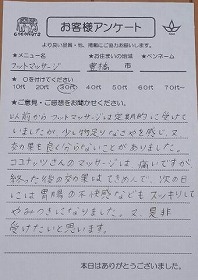 お客様アンケート
より良い店舗・他、掲載にご協力お願いします。
★メニュー名 ★お住まいの地域 ★ペンネーム
フットマッサージ 豊橋 市
★ ○を付けてください
10代 20代 30代 40代 50代 60代 70代~
★ご意見・ご感想をお聞かせください。
以前からフットマッサージは定期的に受けて
いましたが、少し物足りなさやを感じ、又
効果を良く分からないことがありました。
ココナッツさんのマッサージは 痛いですが
終った後の効果はてきめんで、次の日
には胃腸の不快感などもスッキリして
やみつきになりました。又、是非
受けたいと思います。
本日はありがとうございました。